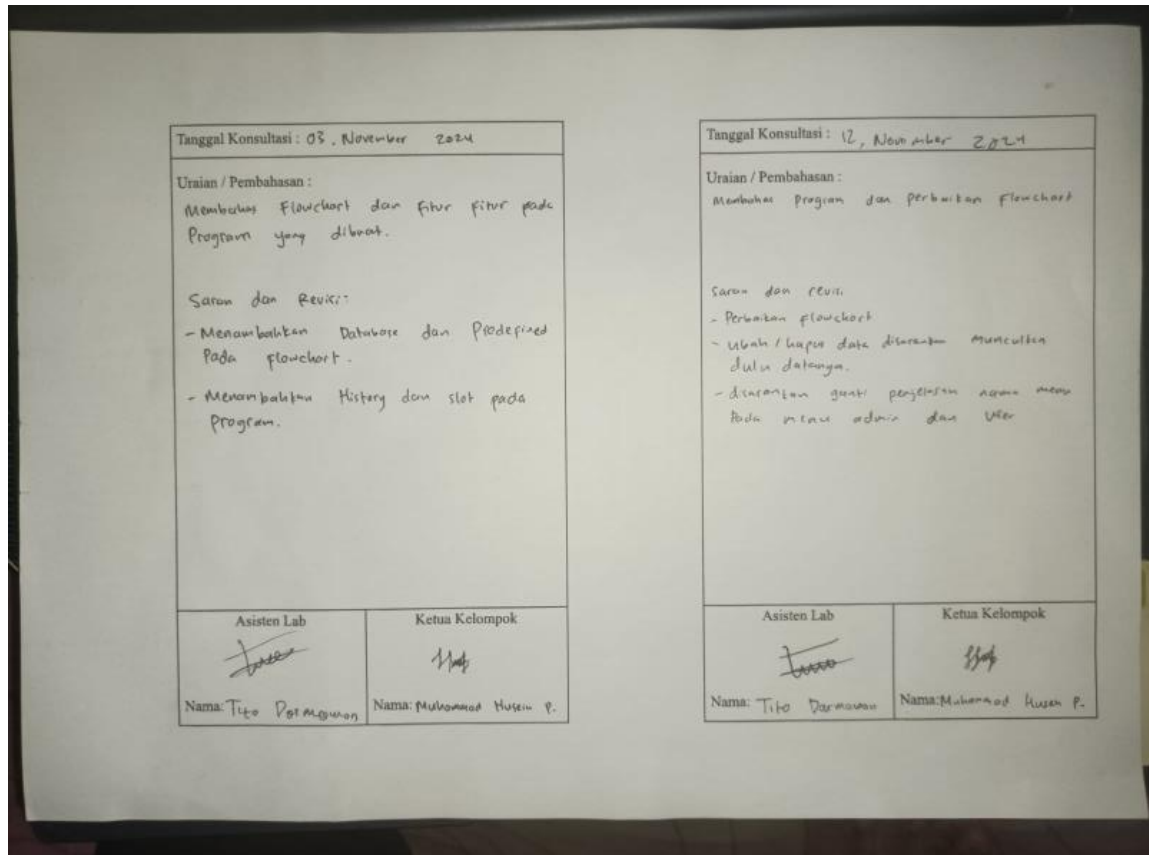 Tanggal Konsultasi : 03, November 2024
Uraian / Pembahasan :
Membahas Flowchart dan fitur fitur pada
Program yang dibuat.
Saran dan Revisi:
- Menambahkan Database dan Predefined
Pada flowchart.
- Menambahkan History dan slot pada
Program.
Asisten Lab
Ketua Kelompok
Nama: Tito Darmawan
Nama: Muhammad Husein P.
Tanggal Konsultasi : 12, November 2024
Uraian / Pembahasan :
Membahas Program dan perbaikan Flowchart
Saran dan revisi
- Perbaikan flowchart
- Ubah / hapus data disarankan munculkan
dulu datanya.
- disarankan ganti penjelasan nama menu
Pada menu admin dan User
Asisten Lab
Ketua Kelompok
Nama: Tito Darmawan
Nama: Muhammad Husen P.